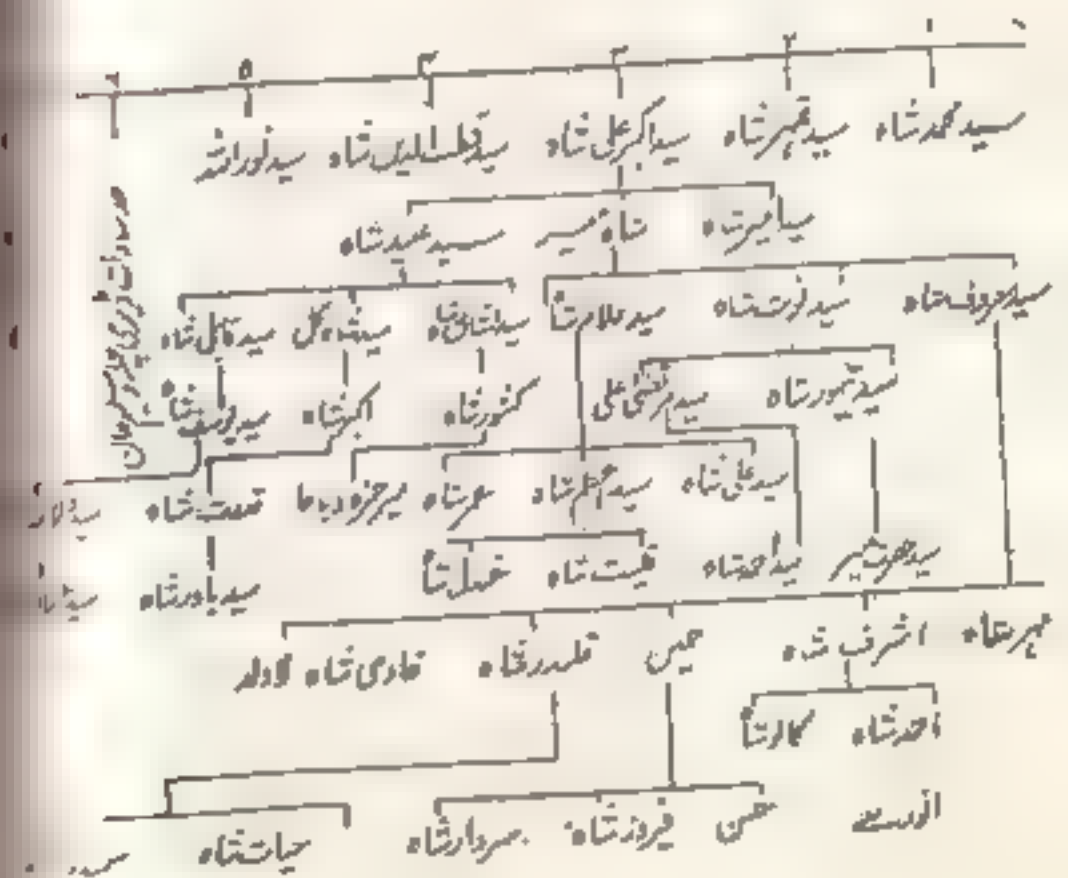 ۱ ۲ ۳ ۴ ۵ ۶
سید محمد شاہ سید قمبر شاہ سید اکبر علی شاہ سید قطب الدین شاہ سید نور اللہ
سید امیر شاہ شاہ میر سید عبید شاہ
سید معروف شاہ سید نوبت شاہ سید غلام شاہ سید مشتاق شاہ سید شاہ گل سید قابل شاہ
سید تیمور شاہ سید مرتضیٰ علی کشور شاہ اکبر شاہ سید یوسف شاہ
سید علی شاہ سید اعظم شاہ عمر شاہ میر حمزہ نعمت شاہ
سید حضرت میر سید احمد شاہ شاہ فضل شاہ سید بہادر شاہ
مہر شاہ اشرف شاہ حسین قلندر شاہ قادری شاہ لاولد
احمد شاہ کمال شاہ
محسن فیروز شاہ سردار شاہ حیات شاہ